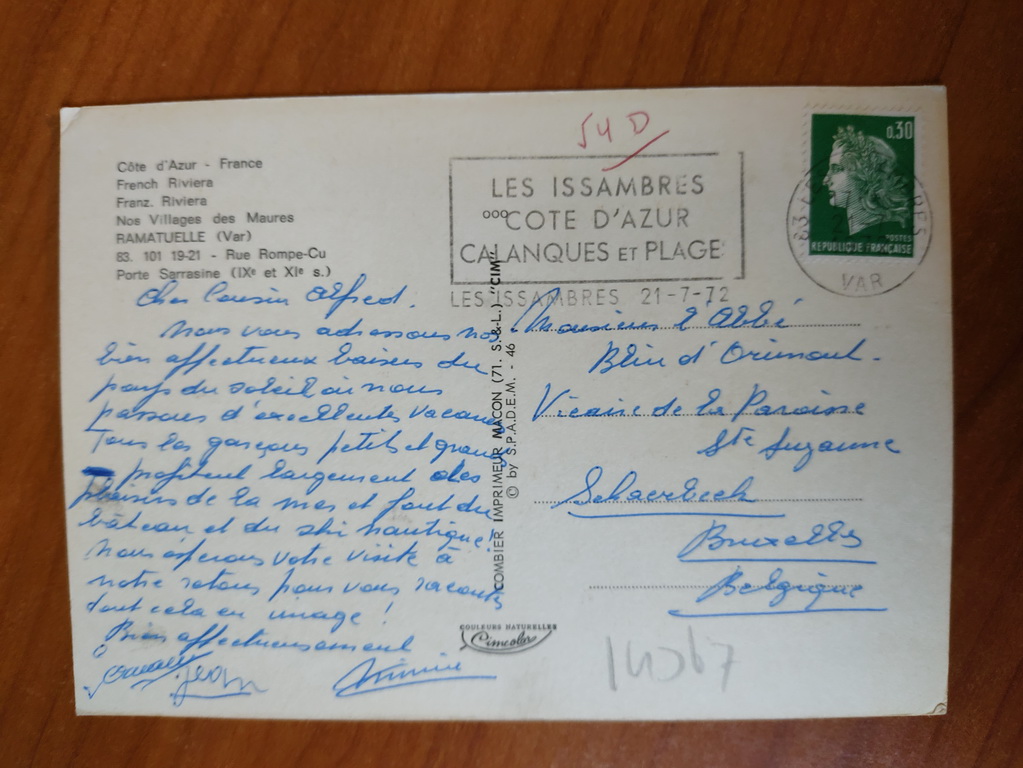 Côte d'Azur - France
French Riviera
Franz. Riviera
Nos Villages des Maures
RAMATUELLE (Var)
83. 101 19-21 - Rue Rompe-Cu
Porte Sarrasine (IXe et XIe s.)
Cher Cousin Alfred.
Nous vous adressons nos
bien affectueux baisers du
pays du soleil où nous
passons d'excellentes vacances
Tous les garçons petits et grands
profitent largement des
plaisirs de la mer et font du
bâteau et du ski nautique!
Nous espérons votre visite à
notre retour pour vous raconter
tout cela en image!
Bien affectueusement
Jean
54 D
LES ISSAMBRES
COTE D'AZUR
CALANQUES ET PLAGE
LES ISSAMBRES 21-7-72
0,30
POSTES
REPUBLIQUE FRANÇAISE
83
VAR
COMBIER IMPRIMEUR MACON (71. S.-&-L.) "CIM"
© by S.P.A.D.E.M. - 46
Monsieur l'Abbé
Blin d'Orimont.
Vicaire de la Paroisse
Ste Suzanne
Schaerbeek
Bruxelles
Belgique
COULEURS NATURELLES
Cimcolor